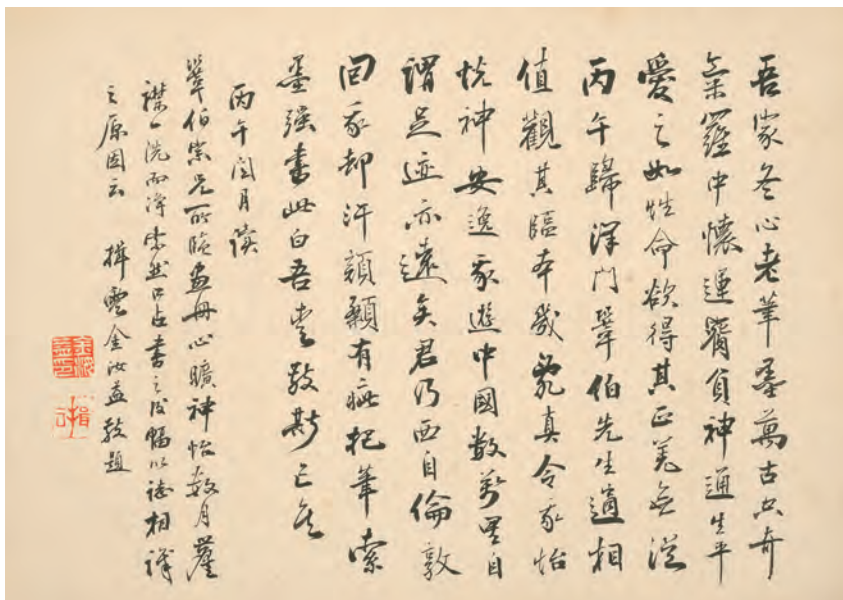 吾家冬心老筆墨萬古出奇
氣羅中懷運負神通生平
愛之如性命欲得其正羌無從
丙午歸門鞏伯先生適相
值觀其臨本幾亂真令我怡
悅神安逸我遊中國數萬里自
謂足迹亦遠矣君乃西自倫敦
回我却汗顏有疵把筆索
墨强書此白吾敬斯已矣
丙午閏月讀
鞏伯宗兄所臨畫册心曠神怡數月塵
襟一洗而淨然口占書之後幅以誌相識
之原因云 揖雲金汝益敬題